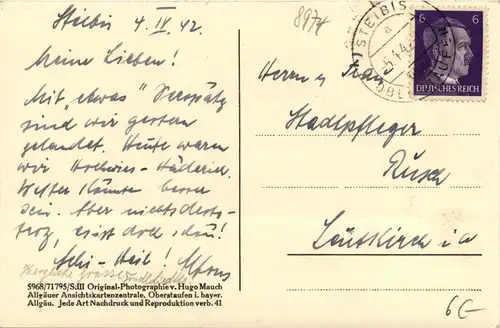 Steibis 4. IV. 42.
Meine Lieben!
Mit „etwas" Verspätg
sind wir gestern
gelandet. Heute waren
wir Hochwies - Häderich.
Wetter könnte besser
sein. Aber nichtsdesto-
trotz, es ist doch schön!
Schi - Heil!
Herzliche Grüsse
5968/71795/S:III Original-Photographie v. Hugo Mauch
Allgäuer Ansichtskartenzentrale, Oberstaufen i. bayer.
Allgäu. Jede Art Nachdruck und Reproduktion verb. 41
897H
STEIBIS
a
-5.4.42
6 6
DEUTSCHES REICH
Herrn u Frau
Stadtpfleger
Rusch
Leutkirch i/a
6€-